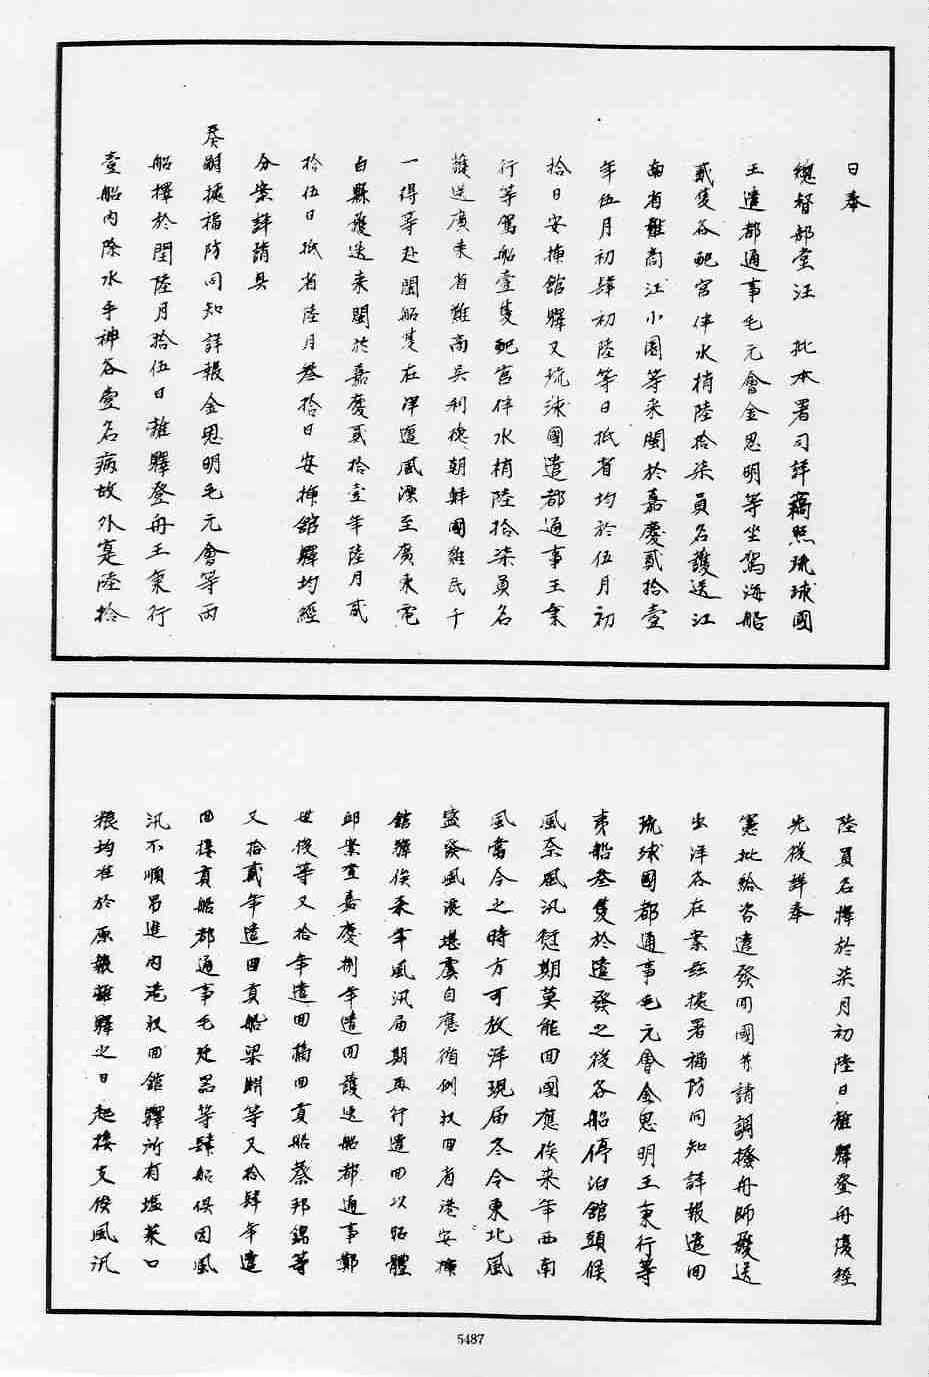 日奉
總督部堂汪　批本署司詳藳照琉球國
王遣都通事毛元會金思明等坐駕海船
貳隻各配官伴水梢陸拾柒員名護送江
南省難商汪小園等來閩於嘉慶貳拾壹
年伍月初肆初陸等日抵省均於伍月初
拾日安揷館驛又琉球國遣都通事王秉
行等駕船壹隻配官伴水梢陸拾柒員名
護送廣東省難商吳利德朝鮮國難民千
一得等赴閩船隻在洋遭風漂至廣東電
白縣護送來閩於嘉慶貳拾壹年陸月貳
拾伍日抵省陸月叁拾日安揷館驛均經
分案詳請具
奏嗣據福防同知詳報金思明毛元會等兩
船擇於閏陸月拾伍日離驛登舟王秉行
壹船內除水手神谷壹名病故外寔陸拾
陸員名擇於柒月初陸日離驛登舟復經
先後詳奉
憲批給咨遣發回國并請調撥舟師護送
出洋各在案茲據署福防同知詳報遣回
琉球國都通事毛元會金思明王秉行等
夷船叁隻於遣發之後各船停泊館頭候
風奈風汛愆期莫能回國應俟來年西南
風當令之時方可放洋現届冬令東北風
盛發風浪堪虞自應循例收回省港安揷
館驛俟來年風汛届期再行遣回以昭體
卹業查嘉慶捌年遣回護送船都通事鄭
世俊等又拾年遣回摘回貢船蔡邦錦等
又拾貳年遣回貢船梁淵等又拾肆年遣
回接貢船都通事毛廷器等肆船俱因風
汛不順吊進內港收回館驛所有塩菜口
粮均准於原報離驛之日起接支俟風汛
5487